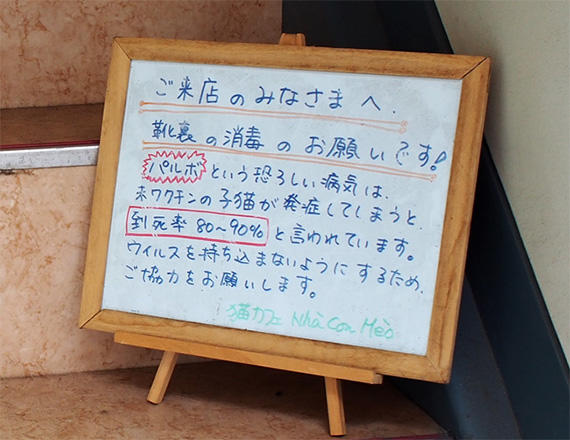 ご来店のみなさまへ.
靴裏の消毒のお願いです!
パルボという恐ろしい病気は、
未ワクチンの子猫が発症してしまうと、
致死率 80〜90% と言われています。
ウイルスを持ち込まないようにするため、
ご協力をお願いします。
猫カフェ Nhà Con Mèo